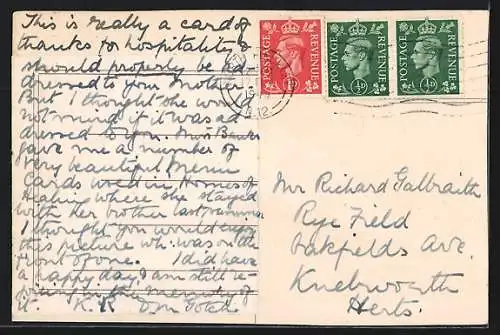 This is really a card of
thanks for hospitality &
should properly be ad-
dressed to your Mother
But I thought she would
not mind if it was ad-
dressed to you. Miss
gave me a number of
very beautiful Menu
Cards used in Homes of
Italy where she stayed
with her brother last summer
I thought you would enjoy
this picture wh. was on the
front of one. I did have
a happy day, I am still re-
joicing in the memory of
it. K. R.
POSTAGE REVENUE
1D
POSTAGE REVENUE
½D
POSTAGE REVENUE
½D
Mr Richard Galbraith
Rye Field
Oakfields Ave.
Knebworth
Herts.